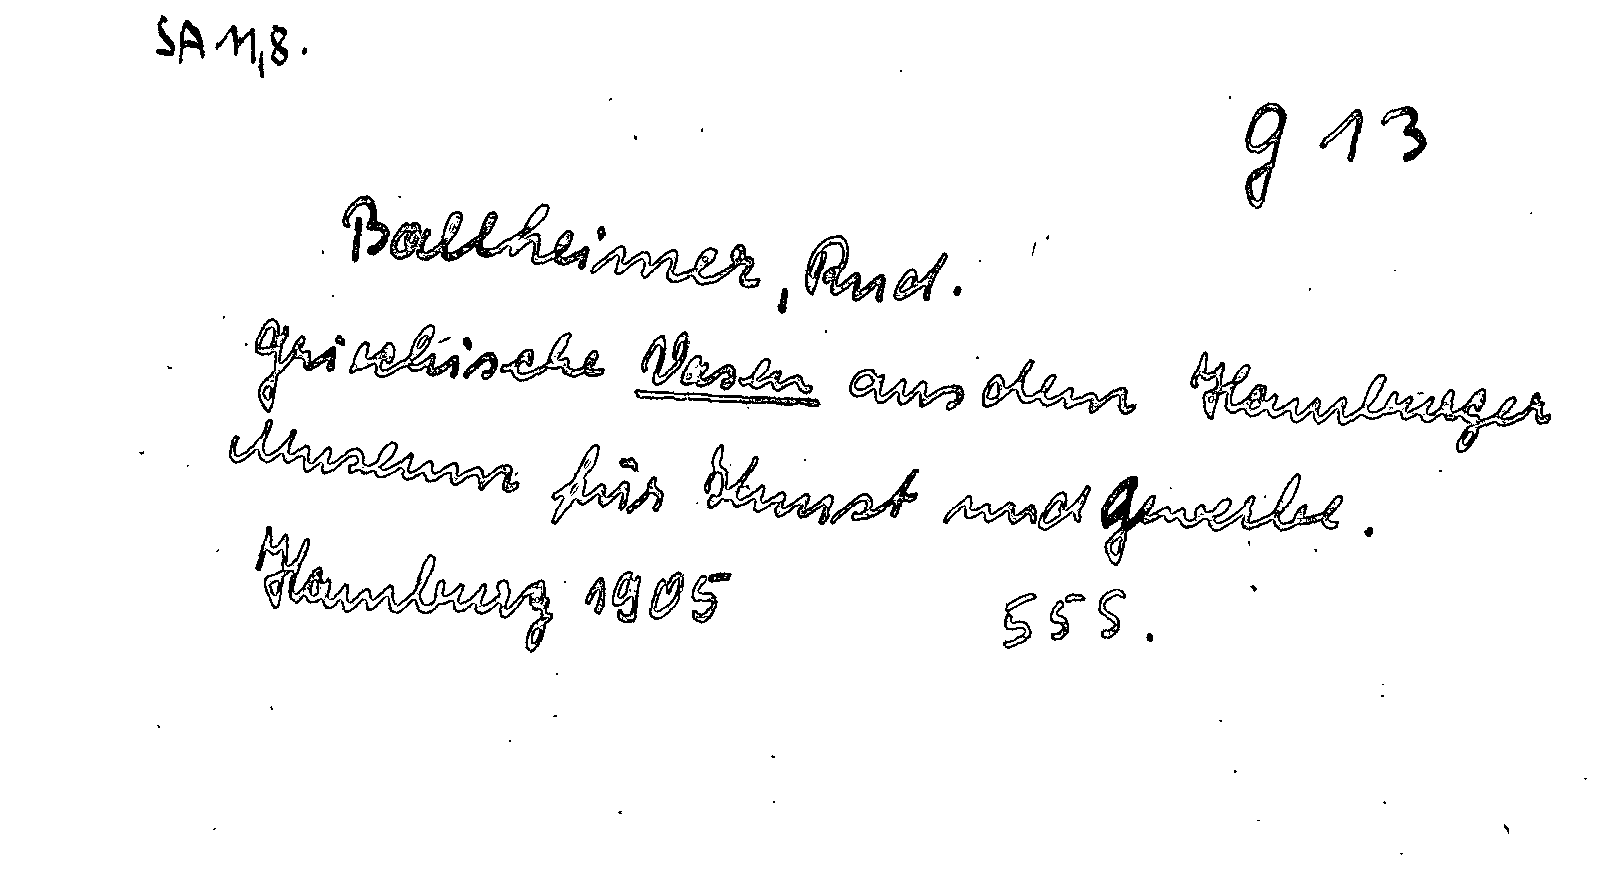 SA 11,8.
g 13
Ballheimer, Rud.
Griechische Vasen aus dem Hamburger
Museum für Kunst und Gewerbe.
Hamburg 1905 55 S.